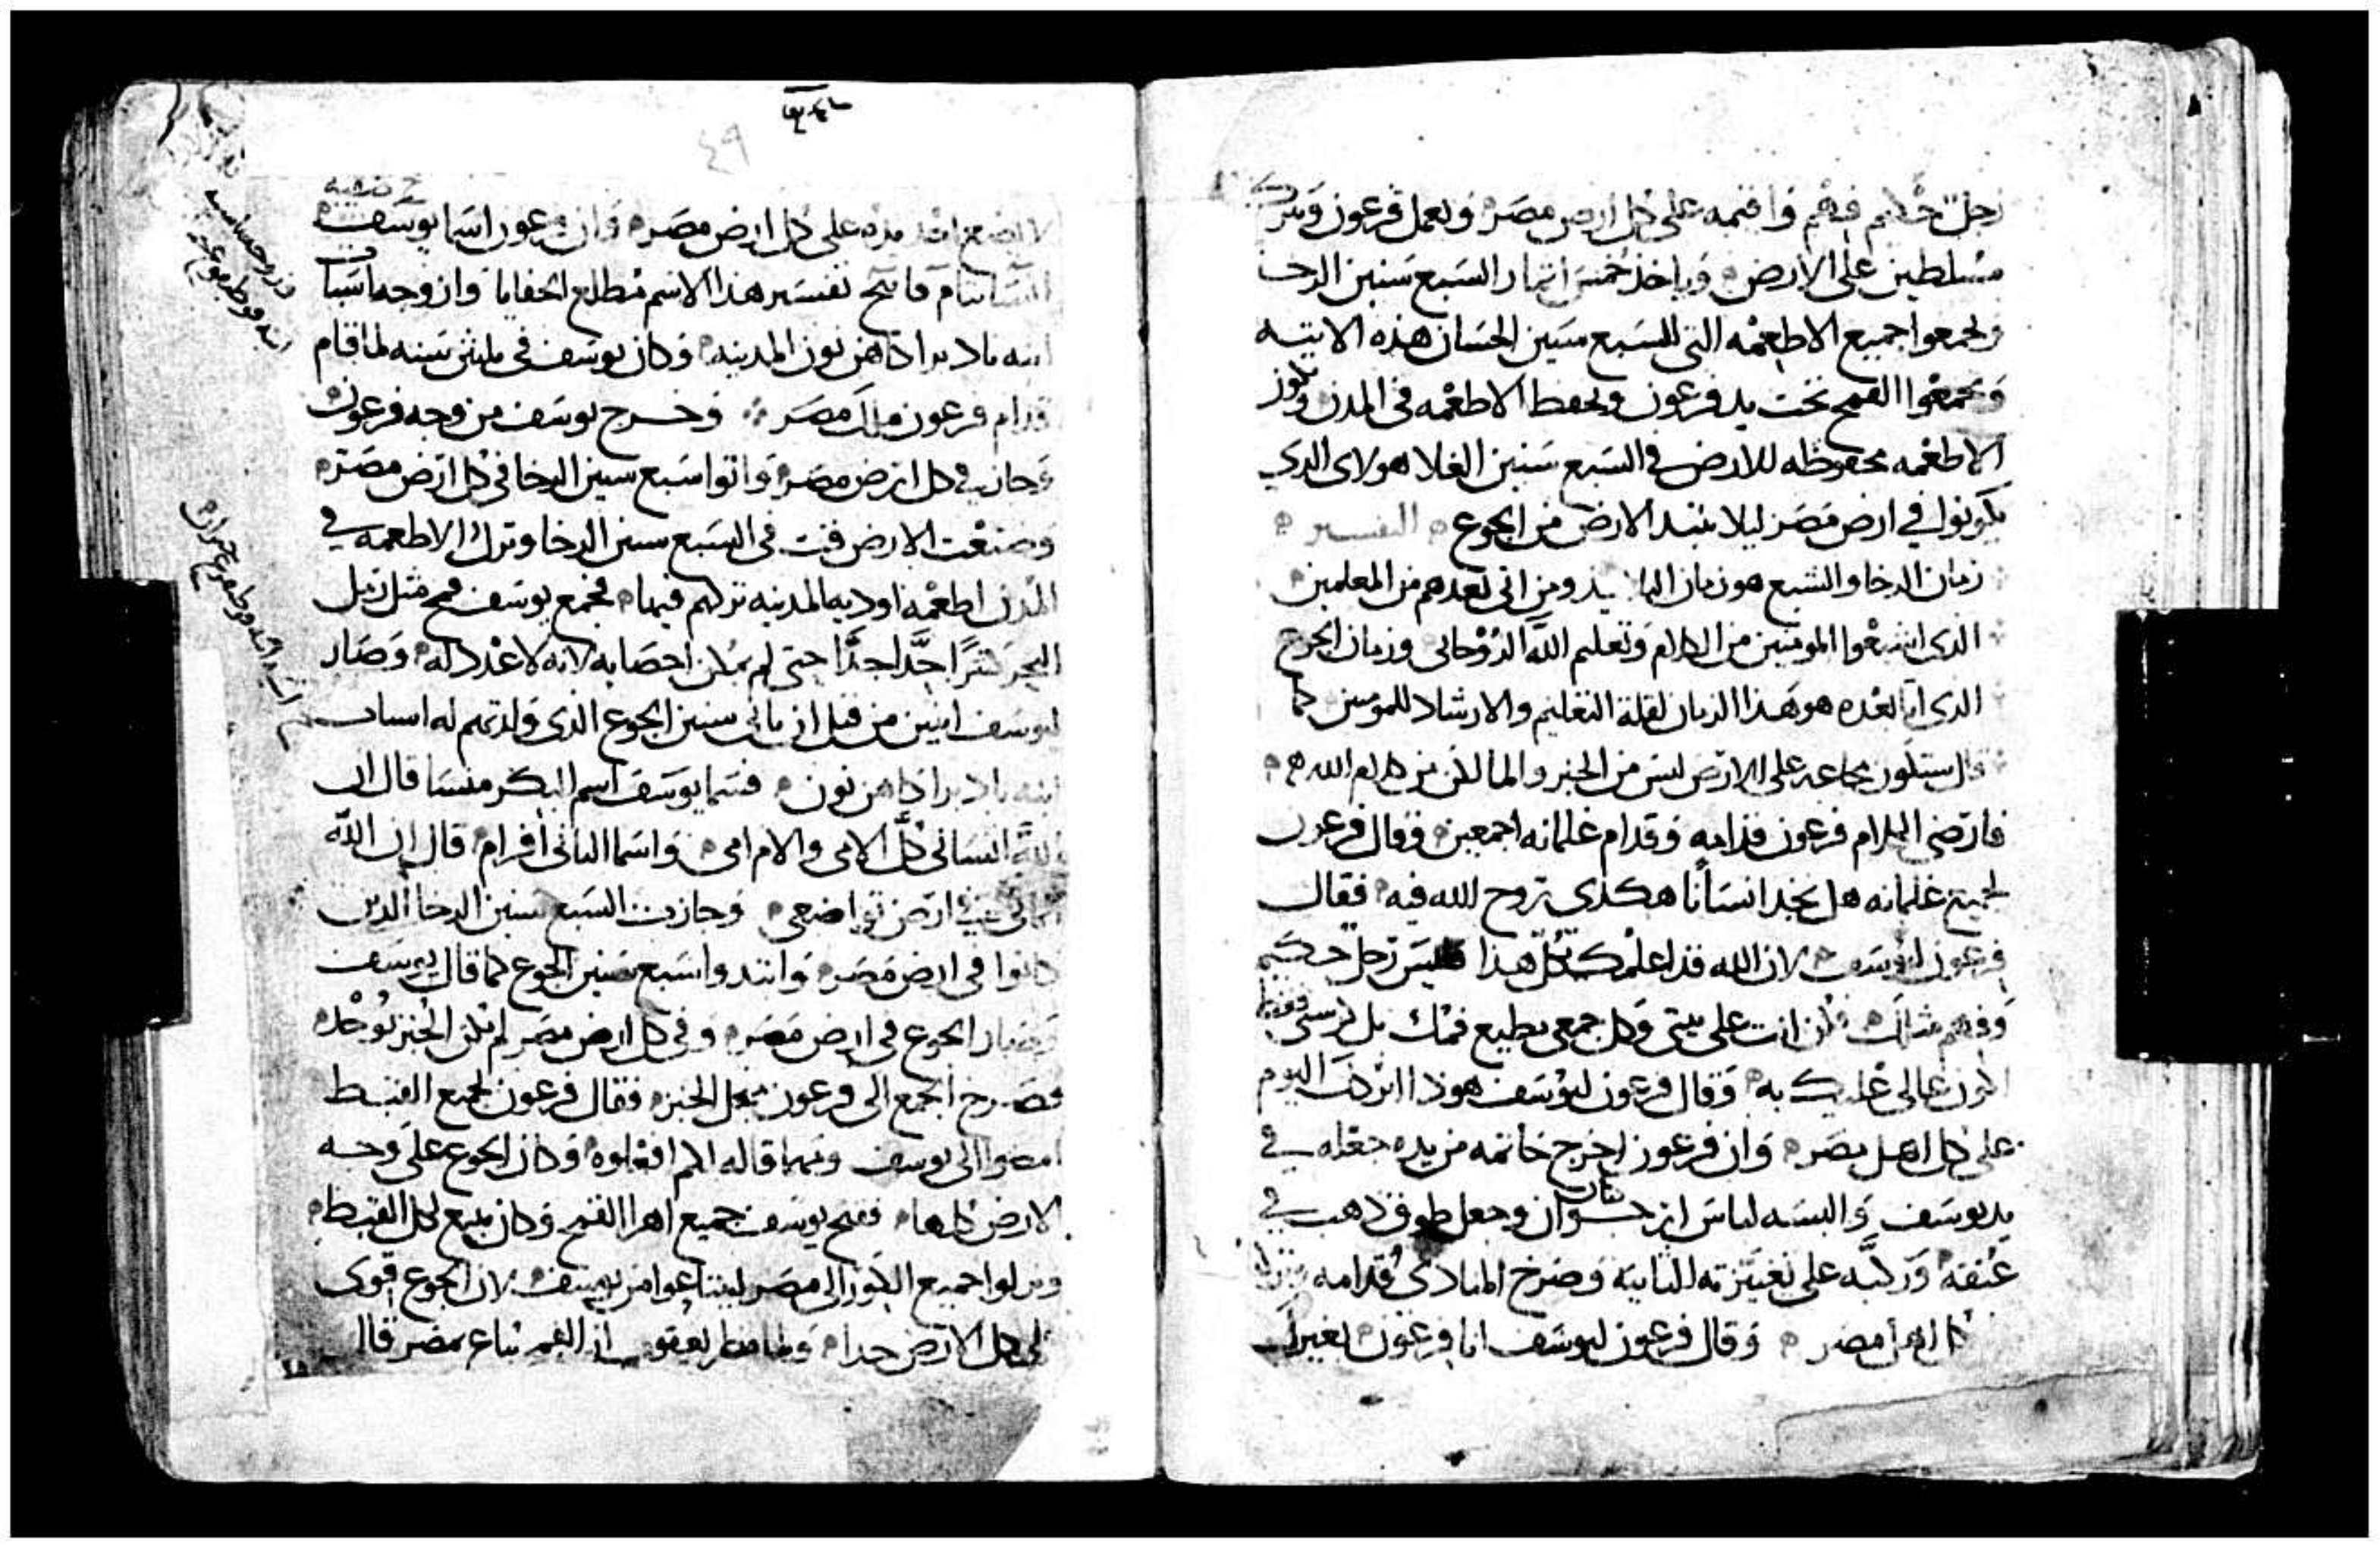 رجل حكيم فهم واقيمه على كل ارض مصر ويعمل فرعون ويترك
مسلطين على الارض وياخذ خمس اثمار السبع سنين الرخا
ويجمعوا جميع الاطعمه التي للسبع سنين الحسان هذه الاتيه
ويجمعوا القمح تحت يد فرعون ويحفظ الاطعمه في المدن وتكون
الاطعمه محفوظه للارض في السبع سنين الغلا هولاى الدي
يكونوا في ارض مصر ليلا تبيد الارض من الجوع التفسير
زمان الرخا والشبع هو زمان ومن اتى بعدهم من المعلمين
الدى اشبعوا المومنين من الكلام وتعليم الله الروحانى وزمان الجوع
الدى اتا بعده هو هدا الزمان لقلة التعليم والارشاد للمومنين كما
قال ستكون مجاعه على الارض ليس من الخبز والما لكن من كلام الله
فارتضى الكلام فرعون قدامه وقدام غلمانه اجمعين وقال فرعون
لجميع غلمانه هل نجد انسانا هكدى روح الله فيه فقال
فرعون ليوسف لان الله قد اعلمك كل هدا فليس رجل حكيم
وفهم مثلك فكن انت على بيتى وكل جمعى يطيع فمك بل كرسى فقط
اكون عالى عليك به وقال فرعون ليوسف هودا اتركك اليوم
على كل اهل مصر وان فرعون اخرج خاتمه من يده جعله في
يد يوسف والبسه لباس ارجوان وجعل طوق دهب في
عنقه وركبه على الثانيه وصرخ المنادى قدامه
كل اهل مصر وقال فرعون ليوسف انا فرعون بغيرك
٤٩
لا يضع احد يده على كل ارض مصر وان فرعون اسما يوسف
فانيح تفسير هدا الاسم مطلع الخفايا وازوجه اسنات
ابنه كاهن نون المدينه وكان يوسف في ثلثين سنه لما قام
قدام فرعون ملك مصر وخرج يوسف من وجه فرعون
وجاز في كل ارض مصر واتوا سبع سنين الرخا في كل ارض مصر
وصنعت الارض قت في السبع سنين الرخا وترك الاطعمه في
المدن اطعمة اودية المدينه تركهم فيها فجمع يوسف قمح مثل رمل
البحر كثرا جدا جدا حتى لم يمكن احصايه لانه لا عدد له وصار
ليوسف ابنين من قبل ان ياتى سنين الجوع الدى ولدتهم له اسنات
ابنه كاهن نون فسما يوسف اسم البكر منسا قال ان
الله انسانى كل الامى والام امى واسما الثانى افرام قال ان الله
في ارض تواضعى وجازت السبع سنين الرخا الدين
كانوا في ارض مصر وابتدوا سبع سنين الجوع كما قال يوسف
وصار الجوع في ارض مصر وفي كل ارض مصر لم تكن الخبز توجد
فصرخ الجمع الى فرعون لاجل الخبز فقال فرعون لجميع القبط
امضوا الى يوسف ومهما قاله لكم افعلوه وكان الجوع على وجه
الارض كلها ففتح يوسف جميع اهرا القمح وكان يبيع لكل القبط
ونزلوا جميع الكور الى مصر ليبتاعوا من يوسف لان الجوع قوى
على كل الارض جدا ولما نظر يعقوب ان القمح يباع بمصر قال